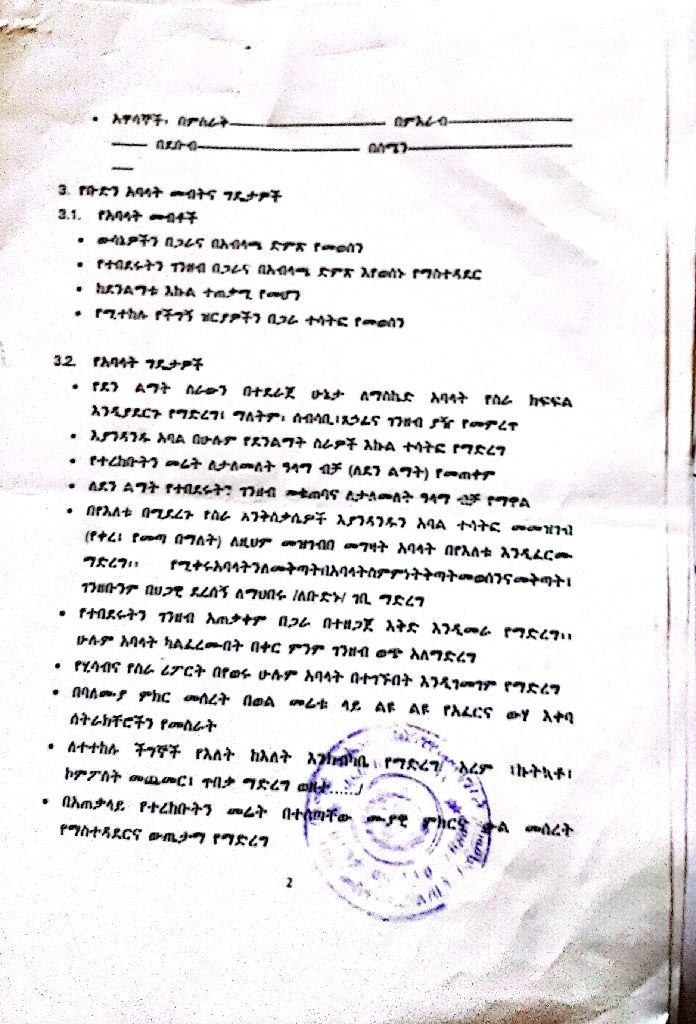 • አዋሳኞች፡ በምስራት_______ በምእራብ_______
____ በደቡብ_______ በሰሜን_______
__
3. የቡድን አባላት መብትና ግዴታዎች
3.1. የአባላት መብቶች
• ውሳኔዎችን በጋራና በአብላጫ ድምጽ የመወሰን
• የተበደሩትን ገንዘብ በጋራና በአብላጫ ድምጽ እየወሰኑ የማስተዳደር
• ከደንልማቱ እኩል ተጠቃሚ የመሆን
• የሚተከሉ የችግኝ ዝርያዎችን በጋራ ተሳትፎ የመወሰን
3.2. የአባላት ግዴታዎች
• የደን ልማት ስራውን በተደራጀ ሁኔታ ለማስኬድ አባላት የስራ ክፍፍል
እንዲያደርጉ የማድረግ፣ ማለትም፡ ሰብሳቢ፣ጸኃፊና ገንዘብ ያዥ የመምረጥ
• እያንዳንዱ አባል በሁሉም የደንልማት ስራዎች እኩል ተሳትፎ የማድረግ
• የተረከቡትን መሬት ለታለመለት ዓላማ ብቻ (ለደን ልማት) የመጠቀም
• ለደን ልማት የተበደሩትን ገንዘብ መቁጠባና ለታለመለት ዓላማ ብቻ የማዋል
• በየእለቱ በሚደረጉ የስራ እንቅስቃሴዎች እያንዳንዱን አባል ተሳትፎ መመዝገብ
(የቀረ፣ የመጣ በማለት) ለዚህም መዝገብበ መግዛት አባላት በየእለቱ እንዲፈርሙ
ማድረግ፡፡ የሚቀሩአባላትንለመቅጣትበአባላትስምምነትቅጣትመወሰንናመቅጣት፣
ገንዘቡንም በህጋዊ ደረሰኝ ለማህበሩ /ለቡድኑ/ ገቢ ማድረግ
• የተበደሩትን ገንዘብ አጠቃቀም በጋራ በተዘጋጀ እቅድ እንዲመራ የማድረግ፡፡
ሁሉም አባላት ካልፈረሙበት በቀር ምንም ገንዘብ ወጭ አለማድረግ
• የሂሳብና የስራ ሪፖርት በየወሩ ሁሉም አባላት በተገኙበት እንዲገመገም የማድረግ
• በባለሙያ ምክር መሰረት በወል መሬቱ ላይ ልዩ ልዩ የአፈርና ውሃ እቀባ
ስትራክቸሮችን የመስራት
• ለተተከሉ ችግኞች የእለት ከእለት እንክብካቤ የማድረግ/ አረም ፣ኩትኳቶ፣
ኮምፖስት መጨመር፣ ጥበቃ ማድረግ ወዘተ....../
• በአጠቃላይ የተረከቡትን መሬት በተሰጣቸው ሙያዊ ምክርና ውል መሰረት
የማስተዳደርና ውጤታማ የማድረግ
2